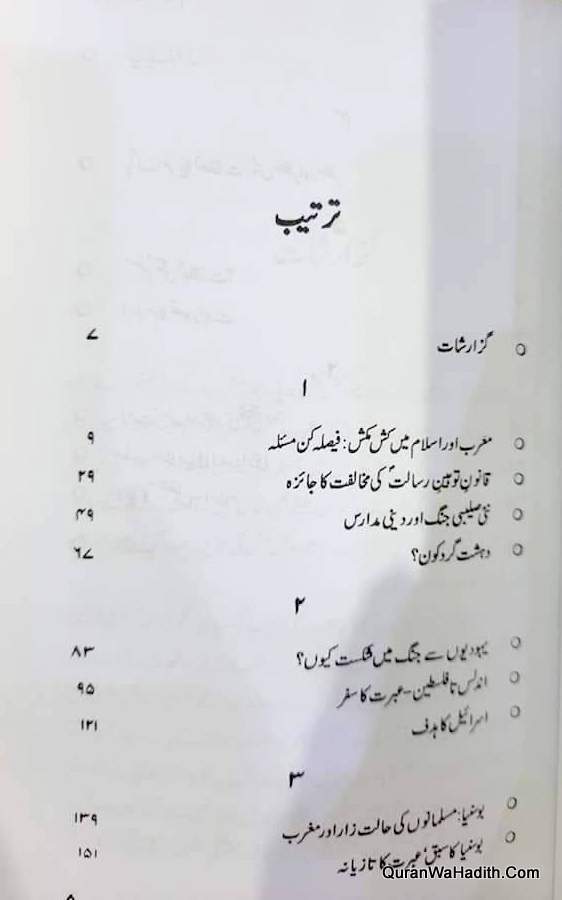 ترتیب
گزارشات ۷
۱
مغرب اور اسلام میں کش مکش: فیصلہ کن مسئلہ ۹
قانونِ توہینِ رسالتؐ کی مخالفت کا جائزہ ۲۹
نئی صلیبی جنگ اور دینی مدارس ۴۹
دہشت گرد کون؟ ۶۷
۲
یہودیوں سے جنگ میں شکست کیوں؟ ۸۳
اندلس تا فلسطین - عبرت کا سفر ۹۵
اسرائیل کا ہدف ۱۲۱
۳
بوسنیا: مسلمانوں کی حالت زار اور مغرب ۱۳۹
بوسنیا کا سبق‘ عبرت کا تازیانہ ۱۵۱
QuranWaHadith.Com
۵